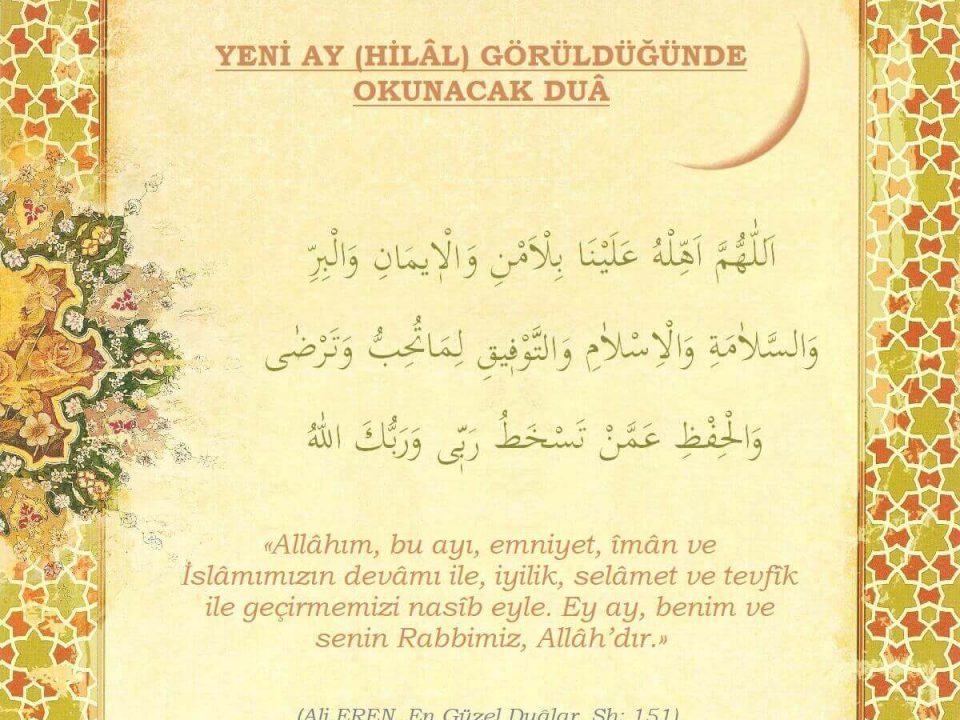 YENİ AY (HİLÂL) GÖRÜLDÜĞÜNDE
OKUNACAK DUÂ
اَللّٰهُمَّ اَهِلْهُ عَلَيْنَا بِلْاَمْنِ وَالْاِيمَانِ وَالْبِرِّ
وَالسَّلَامَةِ وَالْاِسْلَامِ وَالتَّوْفِيقِ لِمَاتُحِبُّ وَتَرْضٰى
وَالْحِفْظِ عَمَّنْ تَسْخَطُ رَبِّى وَرَبُّكَ اللهُ
«Allâhım, bu ayı, emniyet, îmân ve
İslâmımızın devâmı ile, iyilik, selâmet ve tevfîk
ile geçirmemizi nasîb eyle. Ey ay, benim ve
senin Rabbimiz, Allâh’dır.»
(Ali EREN, En Güzel Duâlar, Sh: 151)